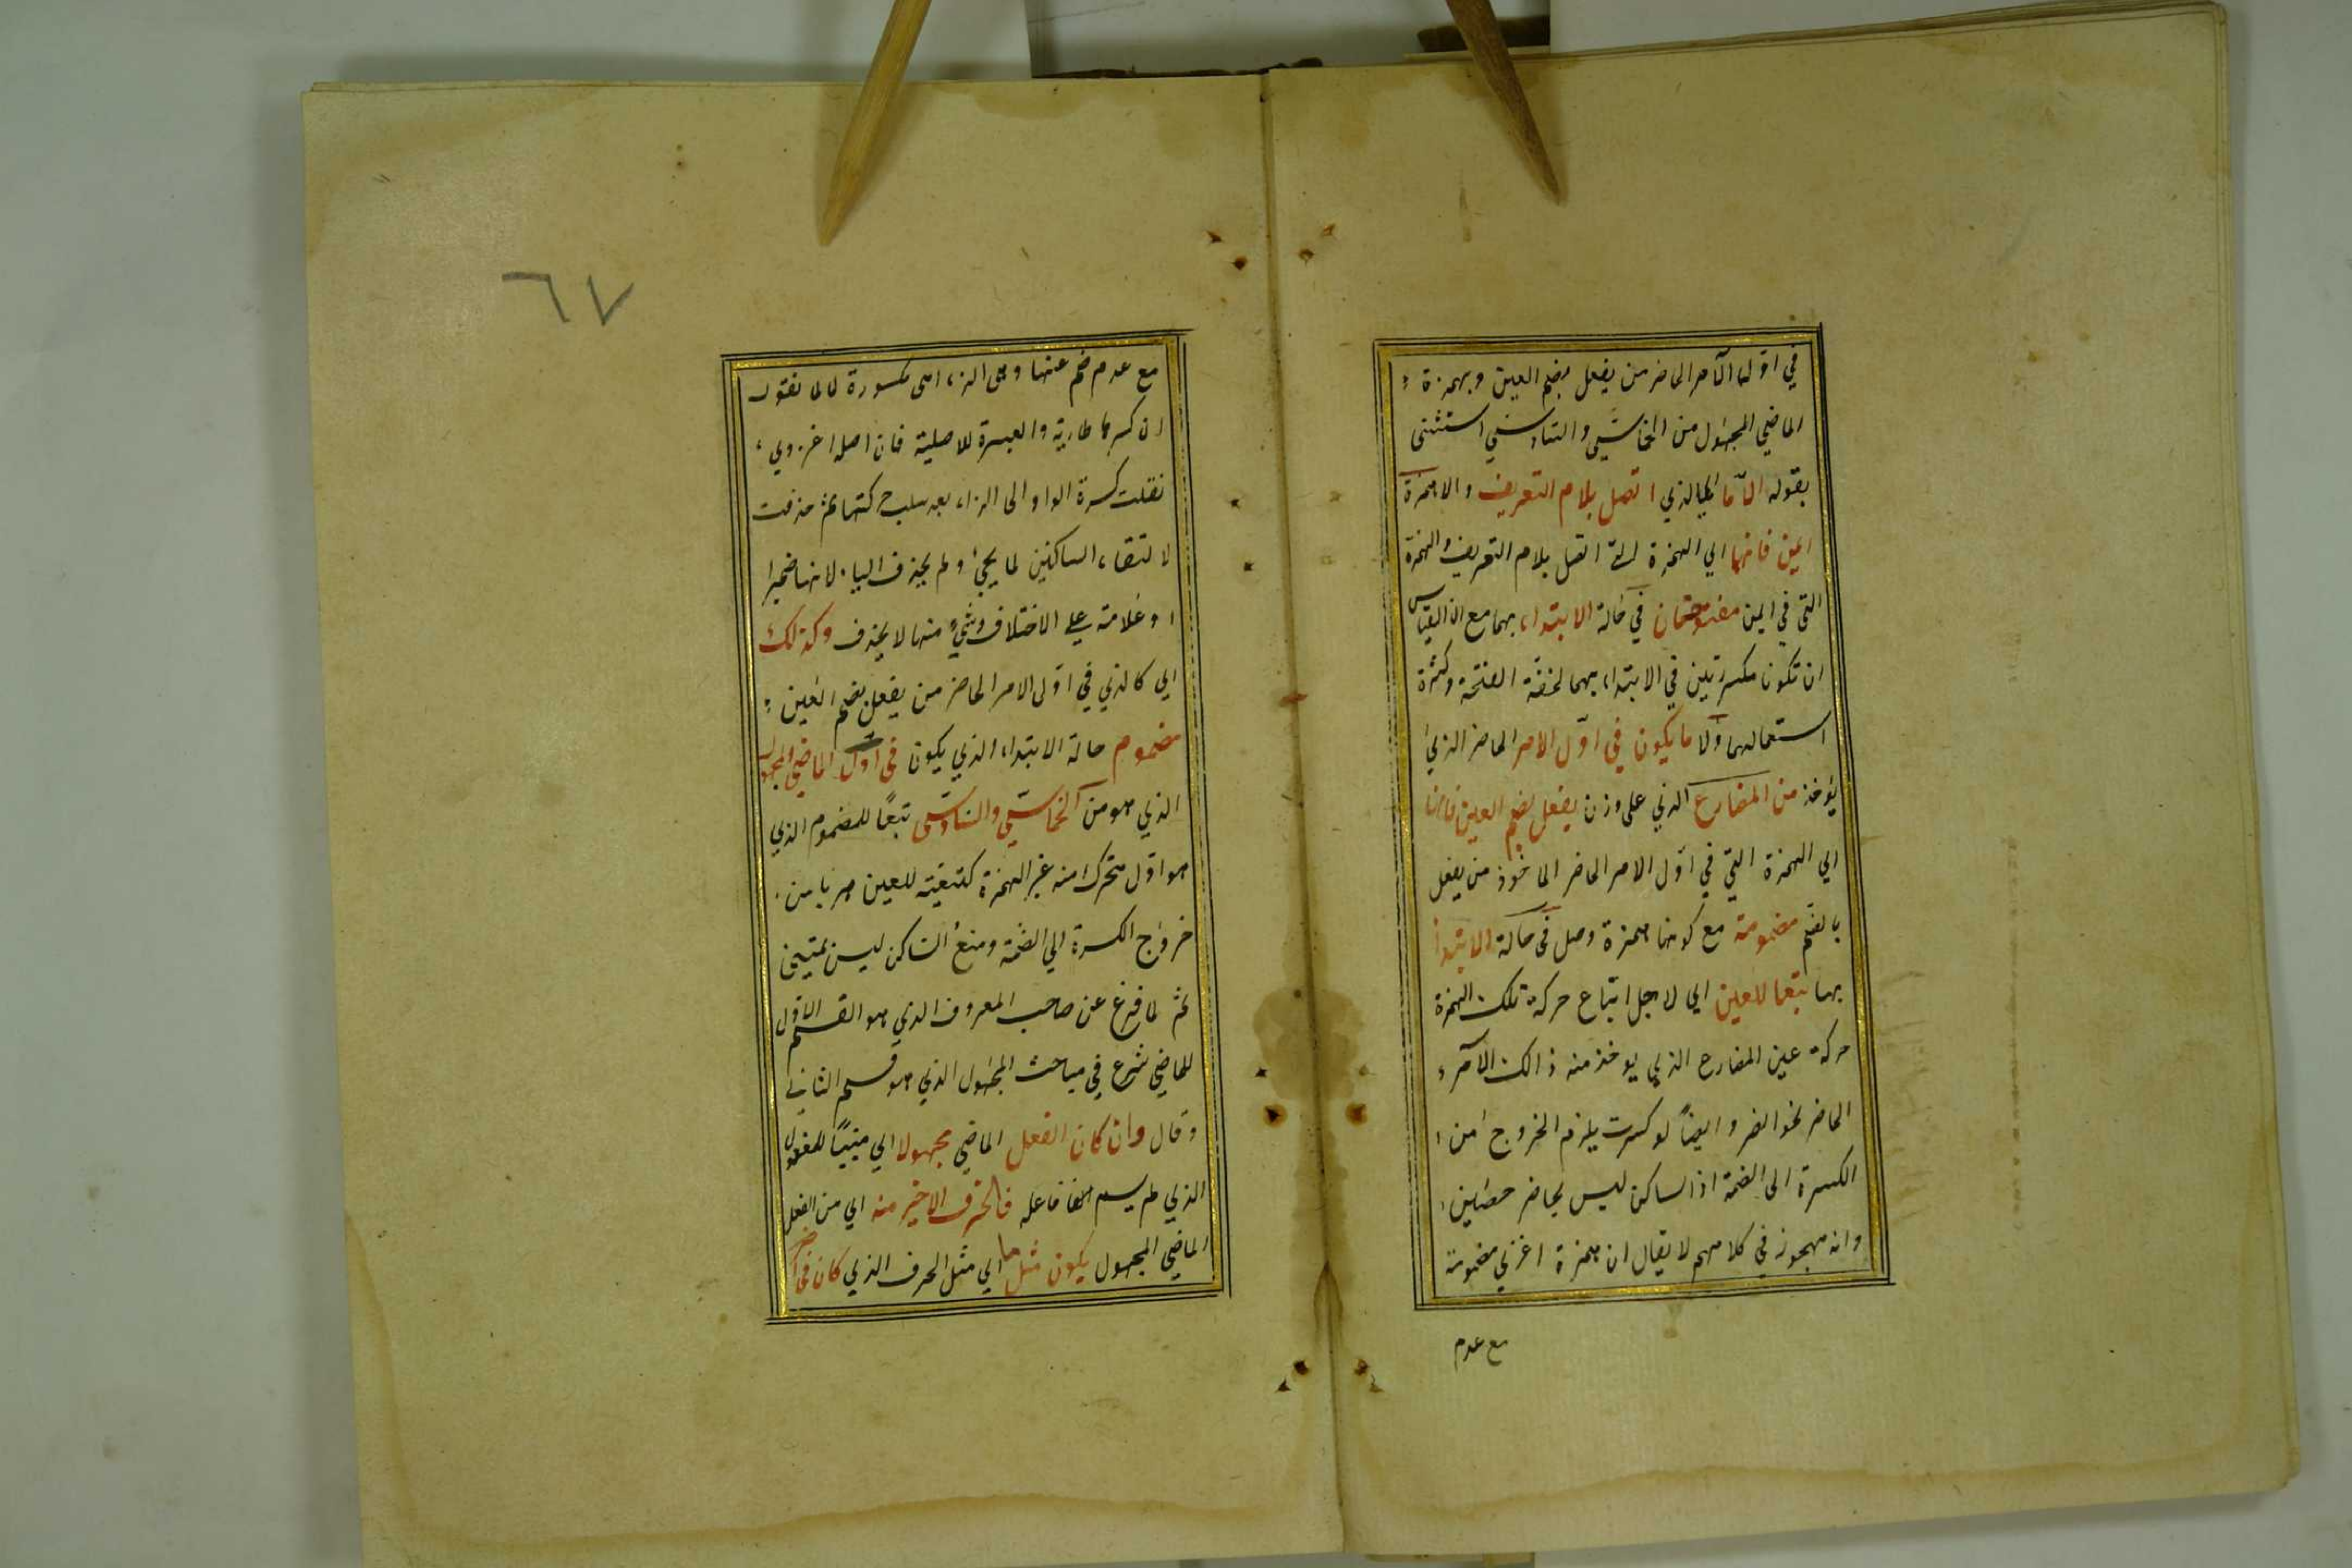 في اول الامر الحاضر من يفعل بضم العين وبهمزة
الماضي المجهول من الخماسي والسداسي استثنى
بقوله الا ما اي الذي اتصل بلام التعريف والا همزة
ايمن فانهما اي الهمزة التي اتصل بلام التعريف والهمزة
التي في ايمن مفتوحتان في حالة الابتداء بهما مع ان القياس
ان تكونا مكسورتين في الابتداء بهما لخفة الفتحة وكثرة
استعمالهما والا ما يكون في اول الامر الحاضر الذي
يؤخذ من المضارع الذي على وزن يفعل بضم العين فانها
اي الهمزة التي في اول الامر الحاضر الماخوذ من يفعل
بالضم مضمومة مع كونها همزة وصل في حالة الابتدا
بها تبعا للعين اي لاجل اتباع حركة تلك الهمزة
حركة عين المضارع الذي يوخذ منه ذالك الامر
الحاضر نحو انصر وايضاً لو كسرت يلزم الخروج من
الكسرة الى الضمة اذ الساكن ليس بحاضر حصين
وانه مهجور في كلامهم لا يقال ان همزة اغزي مضمومة
مع عدم
٦٧
مع عدم ضم عينها وهي الزاء اهي مكسورة لانا نقول
ان كسرها طارية والعبرة للاصلية فان اصله اغزوي
نقلت كسرة الواو الى الزاء بعد سلب حركتها ثم حذفت
لالتقاء الساكنين لما يجئ ولم يحذف الياء لانها ضمير
او علامة على الاختلاف وشئ منها لا يحذف وكذلك
اي كالذي في اول الامر الحاضر من يفعل بضم العين
مضموم حالة الابتداء الذي يكون في اول الماضي المجهول
الذي هو من الخماسي والسداسي تبعاً للمضموم الذي
هو اول متحرك منه غير الهمزة كتبعيته للعين هربا من
خروج الكسرة الي الضمة ومنع الساكن ليس بمتين
ثم لما فرغ عن صاحب المعروف الذي هو القسم الاول
للماضي شرع في مباحث المجهول الذي هو قسم الثاني
وقال وان كان الفعل الماضي مجهولا اي مبنيًا للمفعول
الذي لم يسم فاعله فالحرف الاخير منه اي من الفعل
الماضي المجهول يكون مثل ما اي مثل الحرف الذي كان في